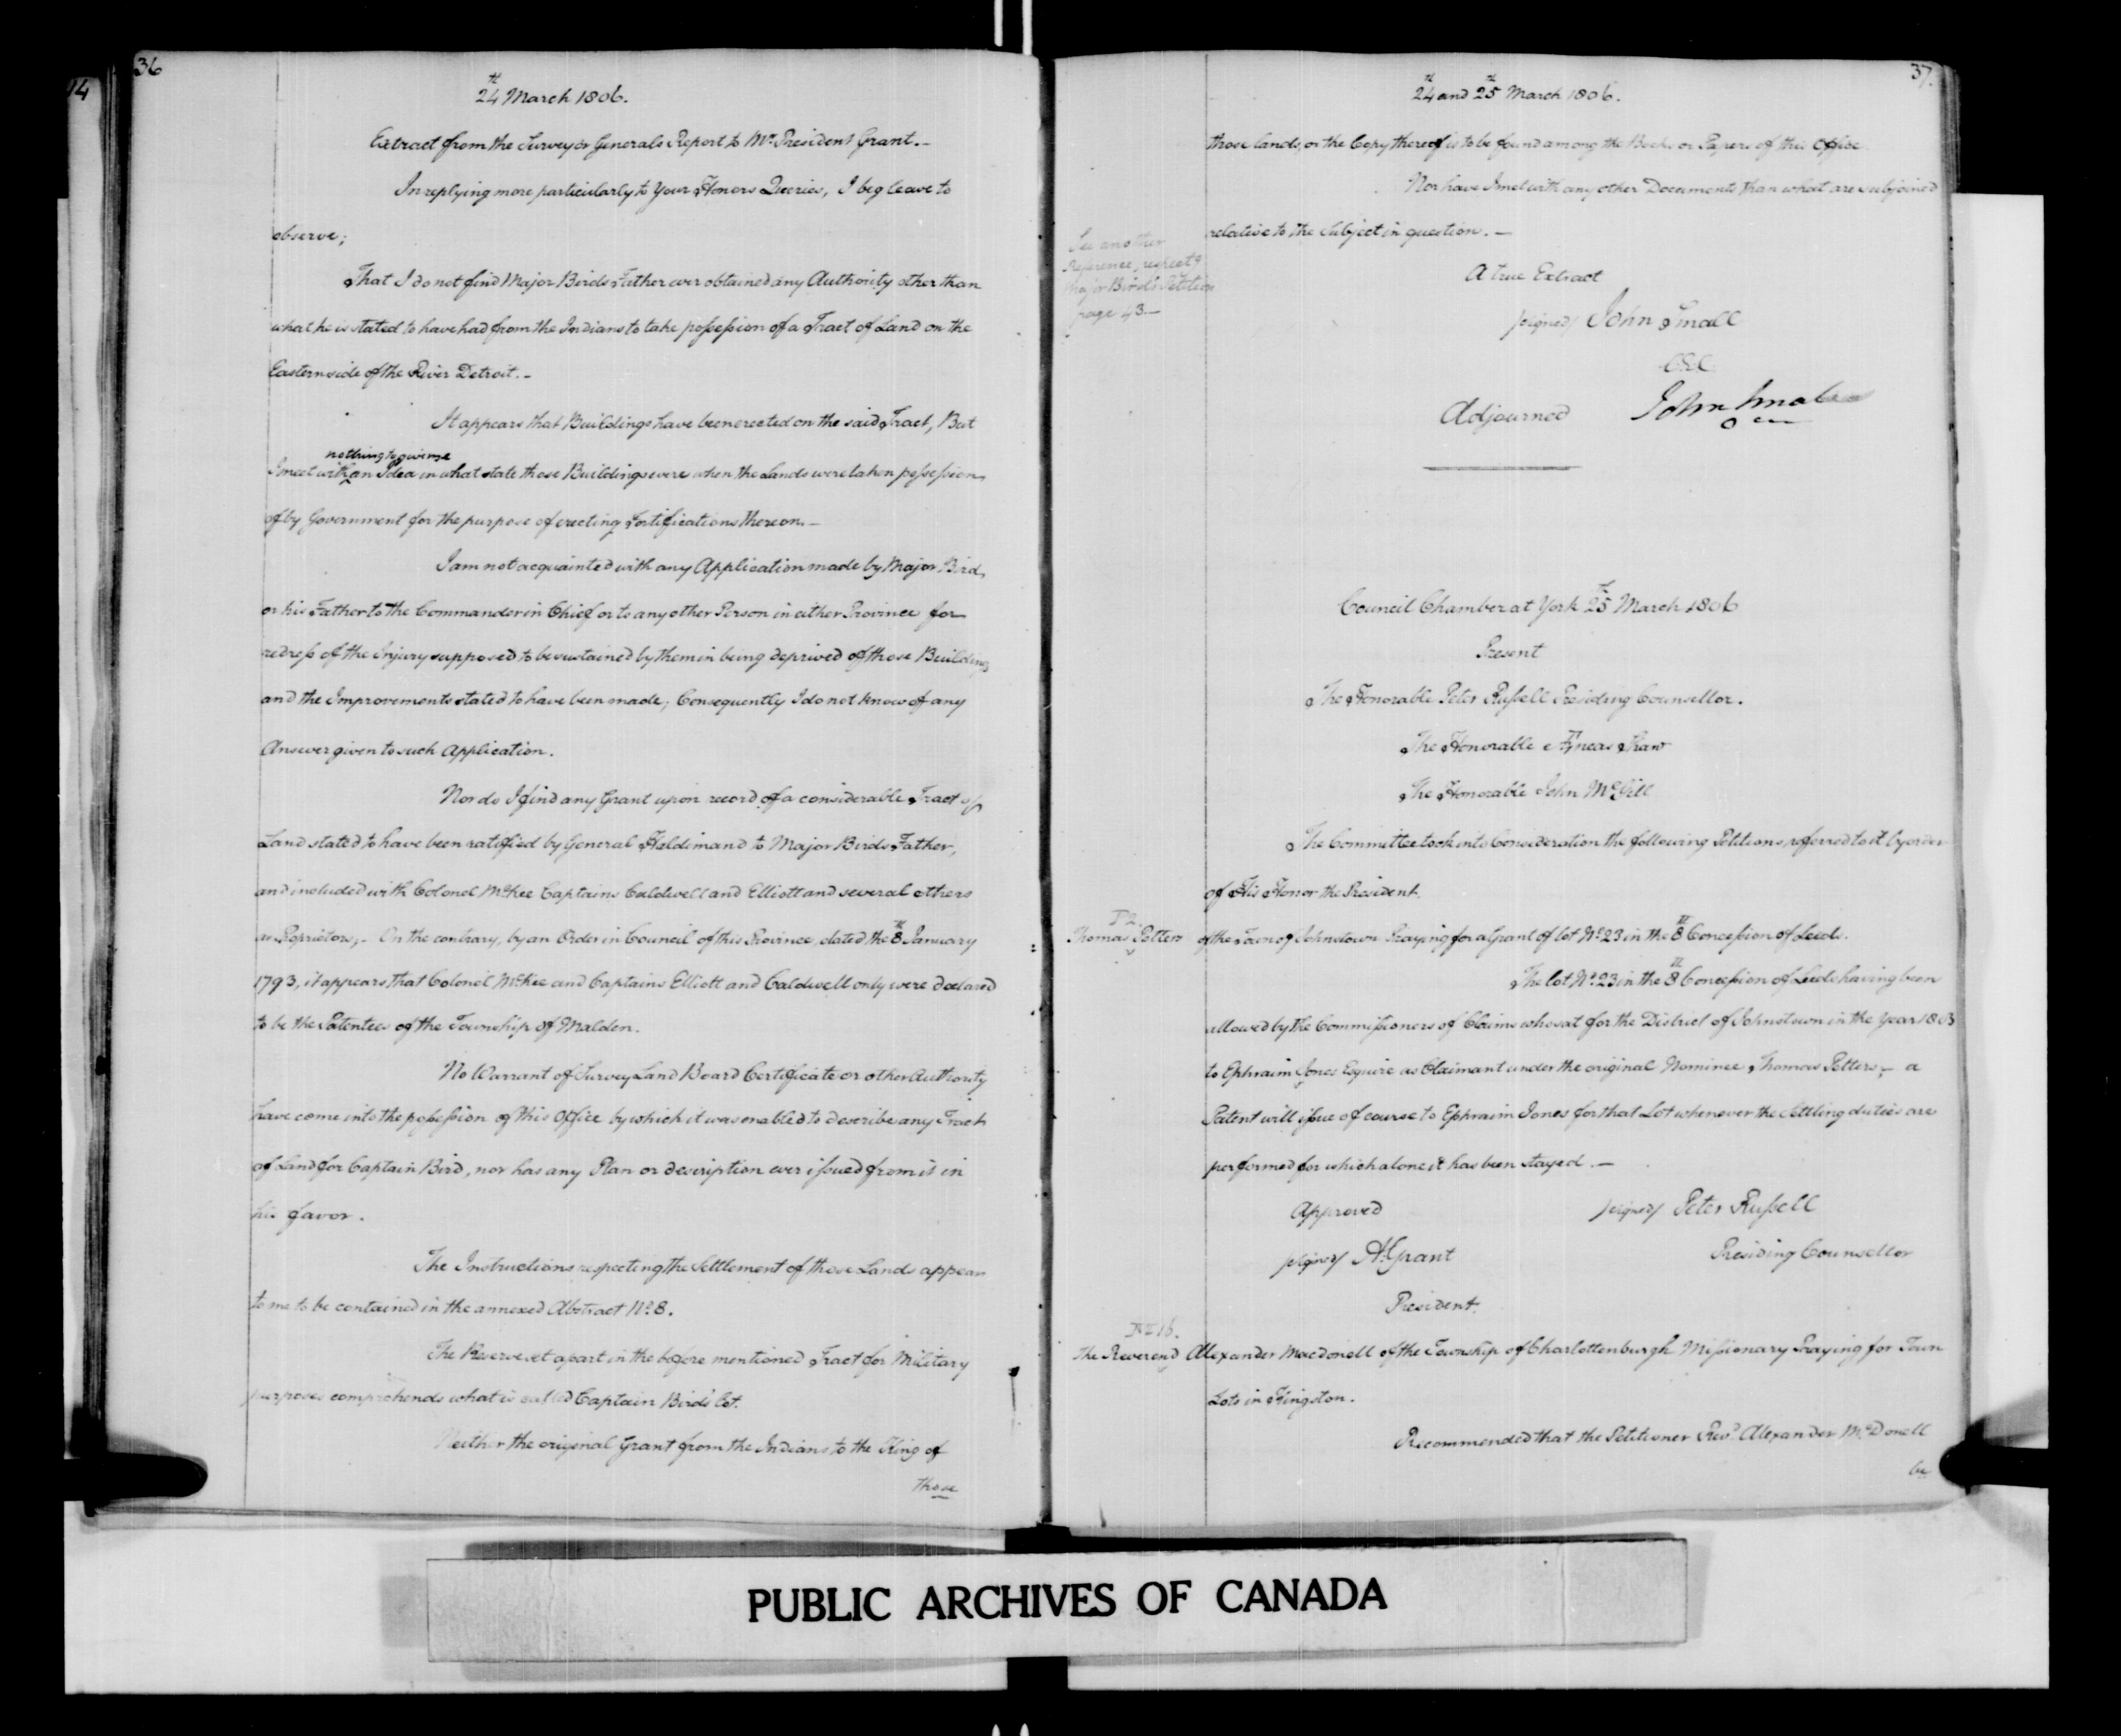 14
36
24th March 1806.
Extract from the Surveyor Generals Report to Mr. President Grant.—
In replying more particularly to Your Honors Queries, I beg leave to
observe;
That I do not find Major Birds Father ever obtained any Authority other than
what he is stated to have had from the Indians to take possession of a Tract of Land on the
Eastern side of the River Detroit.—
It appears that Buildings have been erected on the said Tract, But
nothing to give me
I meet with an Idea in what state those Buildings were when the Lands were taken possession
of by Government for the purpose of erecting Fortifications thereon.—
I am not acquainted with any Application made by Major Bird,
or his Father to the Commander in Chief or to any other Person in either Province for
redress of the Injury supposed to be sustained by them in being deprived of those Buildings
and the Improvements stated to have been made; Consequently I do not know of any
Answer given to such Application.
Nor do I find any Grant upon record of a considerable Tract of
Land stated to have been ratified by General Haldimand to Major Birds Father,
and included with Colonel McKee Captains Caldwell and Elliott and several others
as Proprietors,— On the contrary, by an Order in Council of this Province, dated the 8th January
1793, it appears that Colonel McKee and Captains Elliott and Caldwell only were declared
to be the Patentees of the Township of Malden.
No Warrant of Survey Land Board Certificate or other Authority
have come into the possession of this Office by which it was enabled to describe any Tract
of Land for Captain Bird, nor has any Plan or description ever issued from it in
his favor.
The Instructions respecting the Settlement of those Lands appear
to me to be contained in the annexed Abstract No. 8.
The Reserve set apart in the before mentioned Tract for Military
purposes comprehends what is called Captain Bird's lot.
Neither the original Grant from the Indians to the King of
those
37.
24th and 25th March 1806.
those lands, or the Copy thereof is to be found among the Books or Papers of this Office
Nor have I met with any other Documents than what are subjoined
relative to the subject in question.—
See another
Reference respectg
Major Bird's Petition
page 43—
A true Extract
signed/ John Small
C.E.C.
Adjourned John Small
Council Chamber at York 25th March 1806
Present
The Honorable Peter Russell Presiding Counsellor.
The Honorable Æneas Shaw
The Honorable John McGill
The Committee took into Consideration the following Petitions, referred to it by order
of His Honor the President.
P 2
Thomas Petters of the Town of Johnstown Praying for a Grant of lot No. 23 in the 8th Concession of Leeds.
The lot No. 23 in the 8th Concession of Leeds having been
allowed by the Commissioners of Claims who sat for the District of Johnstown in the Year 1803
to Ephraim Jones Esquire as Claimant under the original Nominee, Thomas Petters,— a
Patent will issue of course to Ephraim Jones for that Lot whenever the Settling duties are
performed for which alone it has been stayed.—
Approved signed/ Peter Russell
signed/ A. Grant Presiding Counsellor
President.
The Reverend Alexander Macdonell of the Township of Charlottenburgh Missionary Praying for Town
Lots in Kingston.
Recommended that the Petitioner Revd. Alexander McDonell
be
PUBLIC ARCHIVES OF CANADA